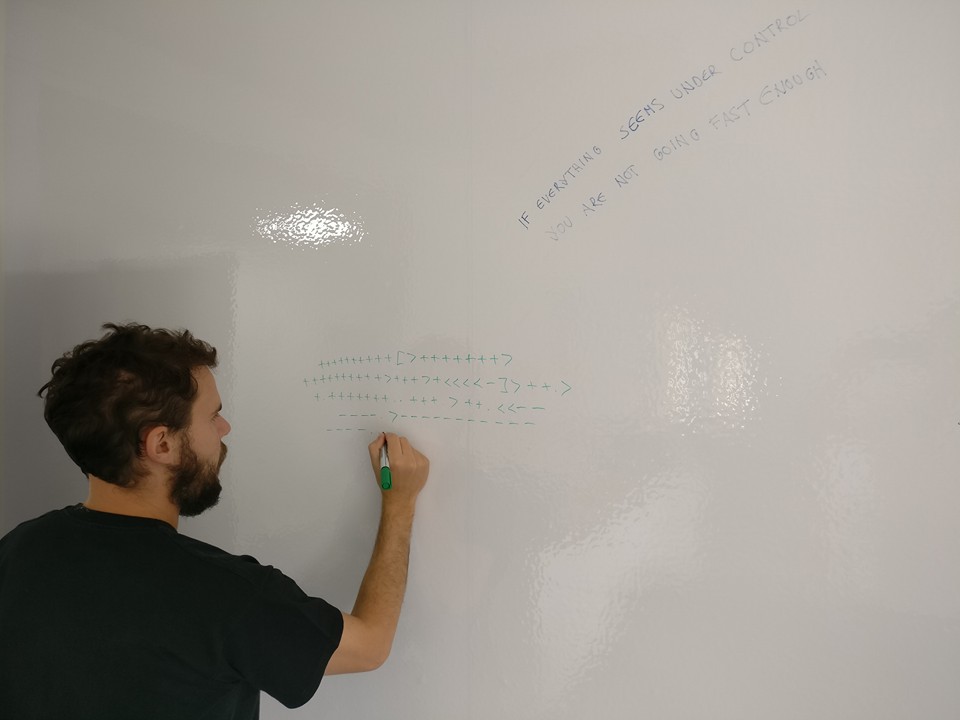 IF EVERYTHING SEEMS UNDER CONTROL
YOU ARE NOT GOING FAST ENOUGH
++++++++++[>+++++++>
++++++++++>+++>+<<<<-]>++.>
+++++++..+++>++.<<--
---->-------------
-----